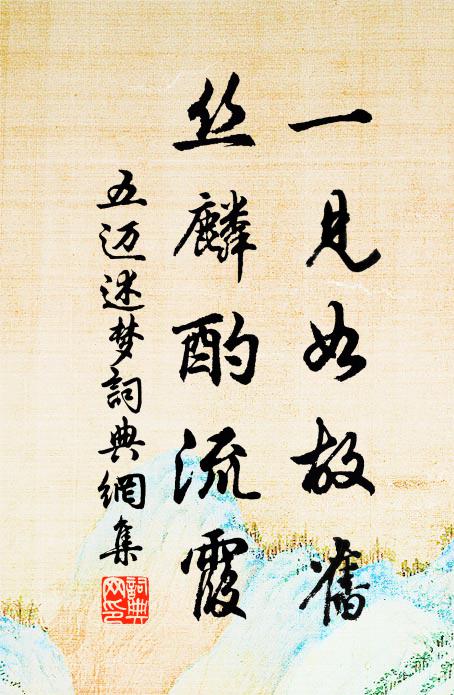 一見如故舊
丝麟酌流霞
五迈迷梦詞典網集
詞典
网印